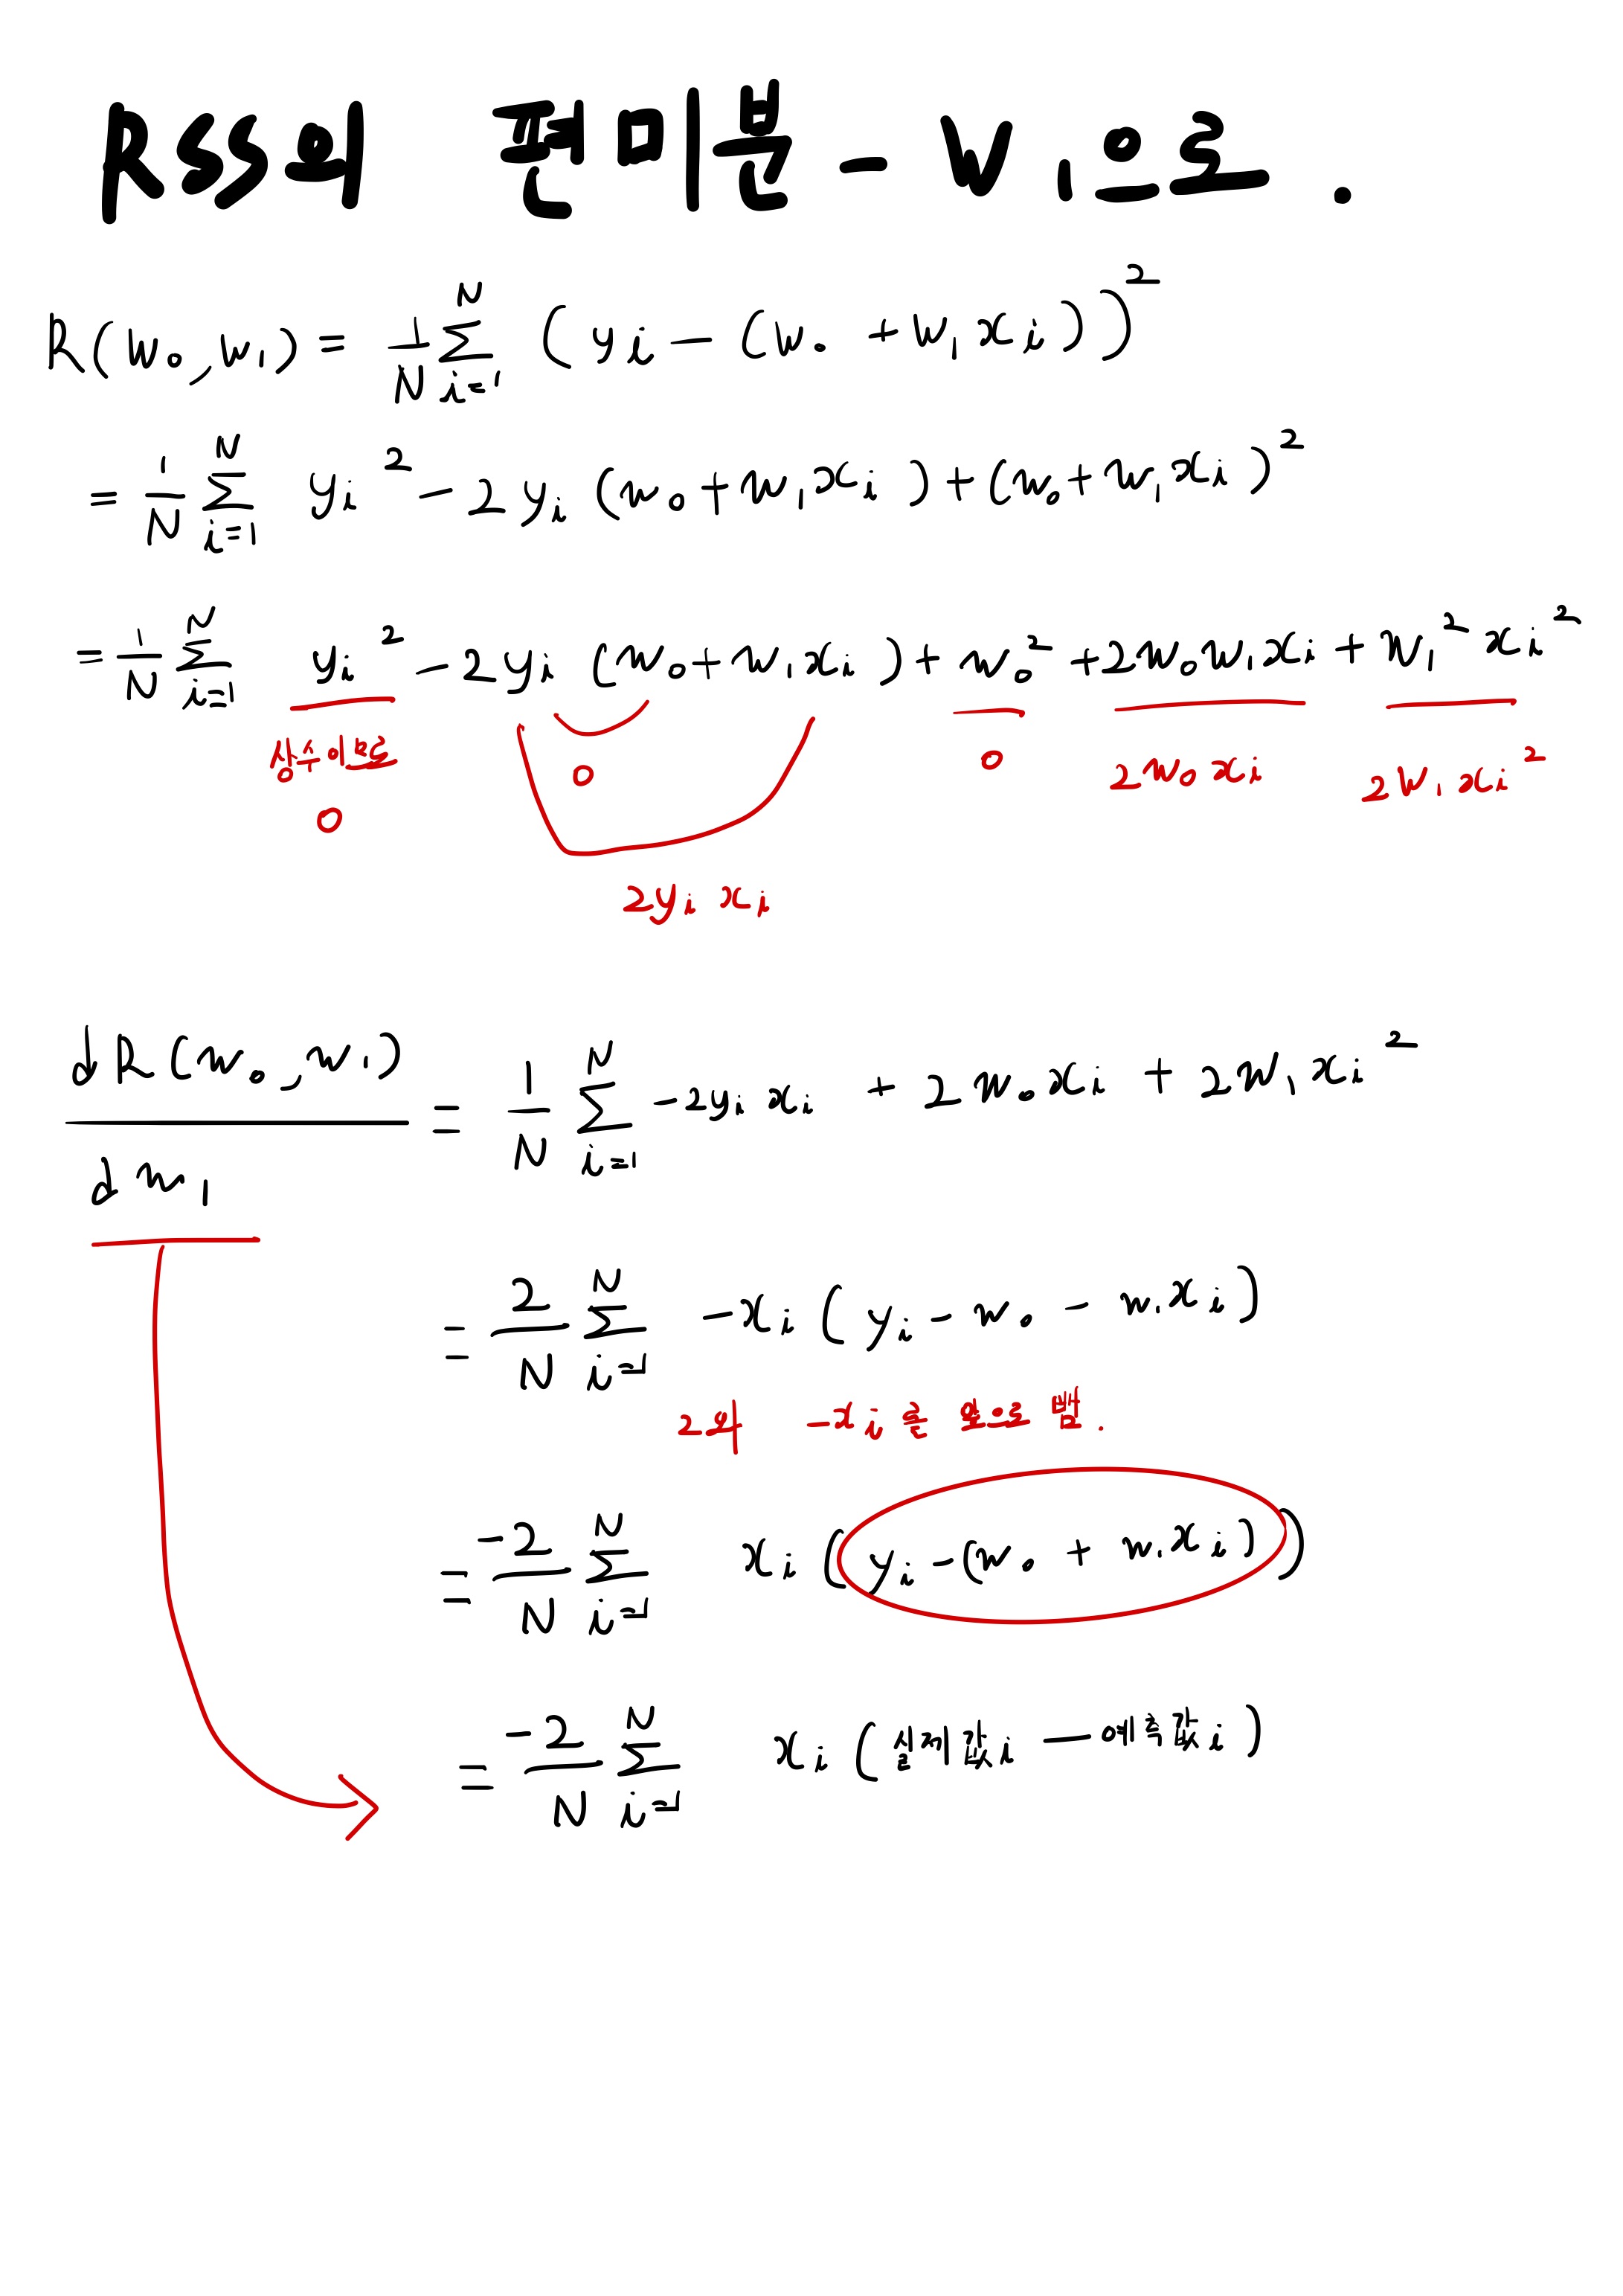 RSS의 편미분 - W₁으로.
R(W₀,W₁) = 1/N Σ_{i=1}^{N} (yᵢ - (W₀ + W₁xᵢ))²
= 1/N Σ_{i=1}^{N} yᵢ² - 2yᵢ(w₀ + w₁xᵢ) + (w₀ + w₁xᵢ)²
= 1/N Σ_{i=1}^{N} yᵢ² - 2yᵢ(w₀ + w₁xᵢ) + w₀² + 2w₀w₁xᵢ + w₁²xᵢ²
상수이므로 0 0 2w₀xᵢ 2w₁xᵢ²
0
2yᵢxᵢ
dR(w₀,w₁)/dw₁ = 1/N Σ_{i=1}^{N} -2yᵢxᵢ + 2w₀xᵢ + 2w₁xᵢ²
= 2/N Σ_{i=1}^{N} -xᵢ(yᵢ - w₀ - w₁xᵢ)
2와 -xᵢ를 앞으로 뺌.
= -2/N Σ_{i=1}^{N} xᵢ(yᵢ - (w₀ + w₁xᵢ))
= -2/N Σ_{i=1}^{N} xᵢ(실제값ᵢ - 예측값ᵢ)